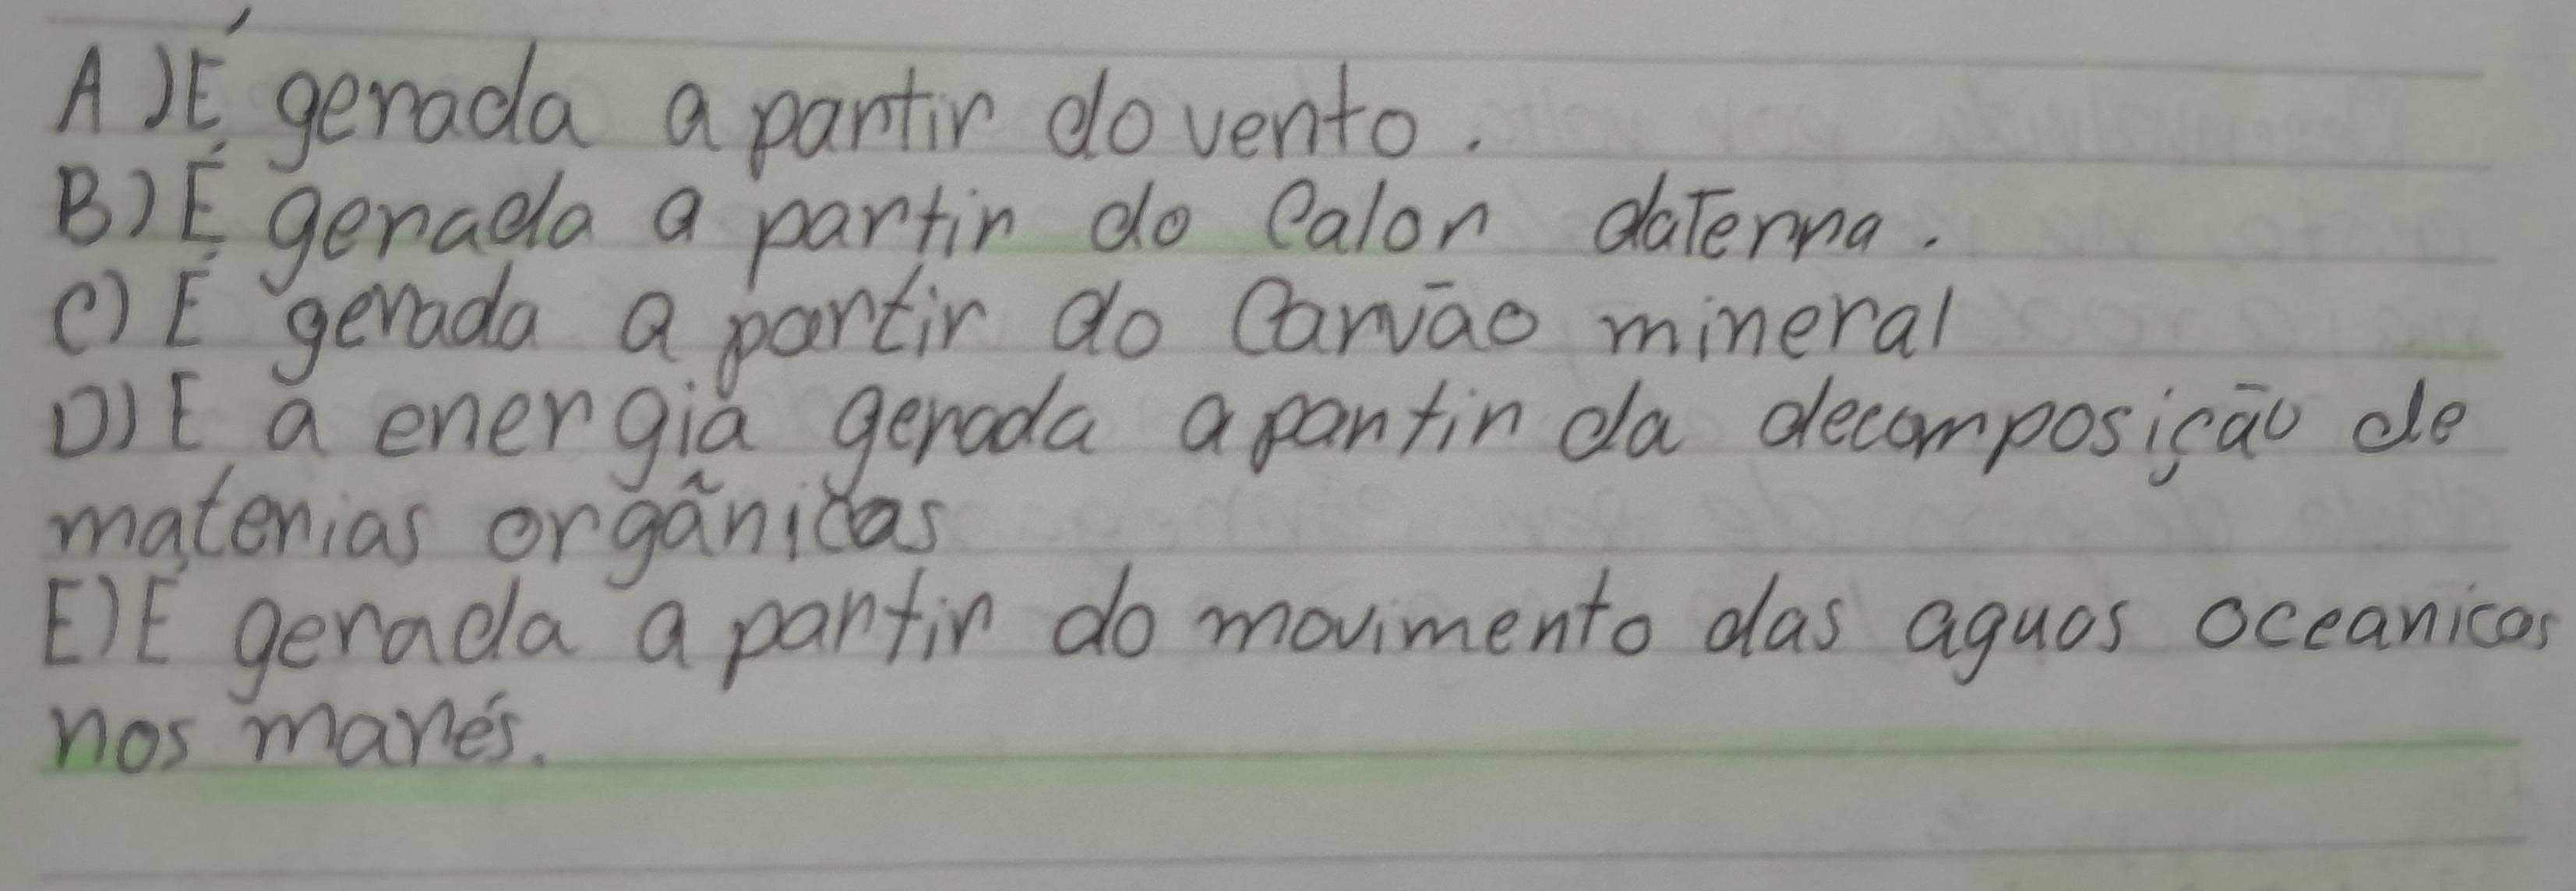 A) É gerada a partir do vento.
B) É gerada a partir do calor da Terra.
C) É gerada a partir do Carvão mineral
D) É a energia gerada a partir da decomposição de
materias orgãnicas
E) É gerada a partir do movimento das aguas oceanicas
nos marés.